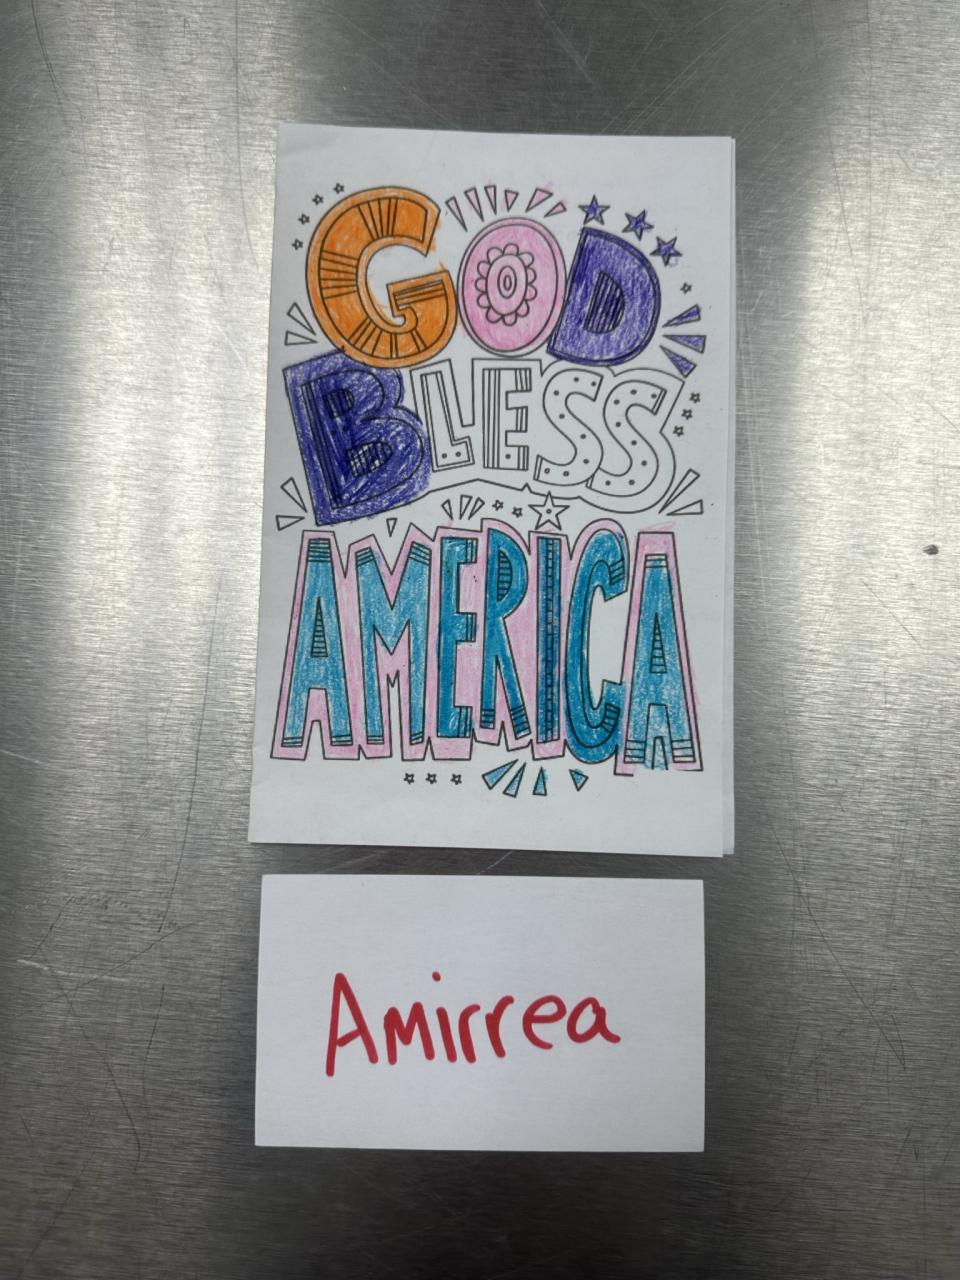 GOD
BLESS
AMERICA
Amirrea